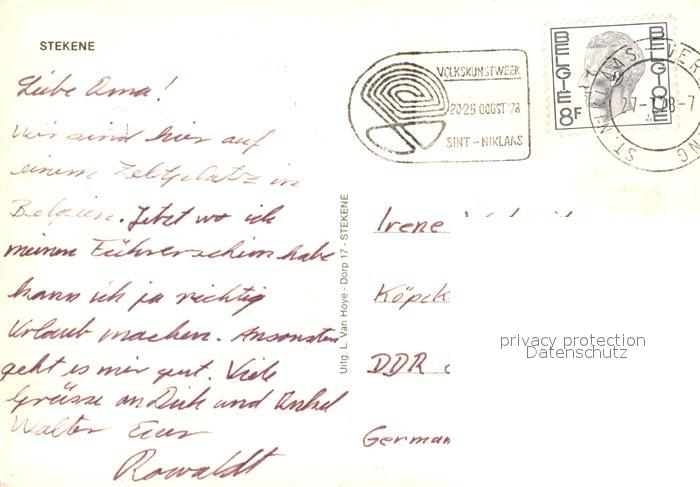 STEKENE
Liebe Oma!
Wir sind hier auf
einem Zeltplatz in
Belgien. Jetzt wo ich
meinen Führerschein habe
kann ich ja richtig
Urlaub machen. Ansonsten
geht es mir gut. Viele
Grüsse an Dich und Onkel
Walter Euer
Rowaldt
Uitg. L. Van Hoye - Dorp 17 - STEKENE
VOLKSKUNSTWEEK
20-26 OOGST '78
SINT - NIKLAAS
BELGIE 8F
BELGIQUE
Irene
Köpck
DDR
German
privacy protection
Datenschutz